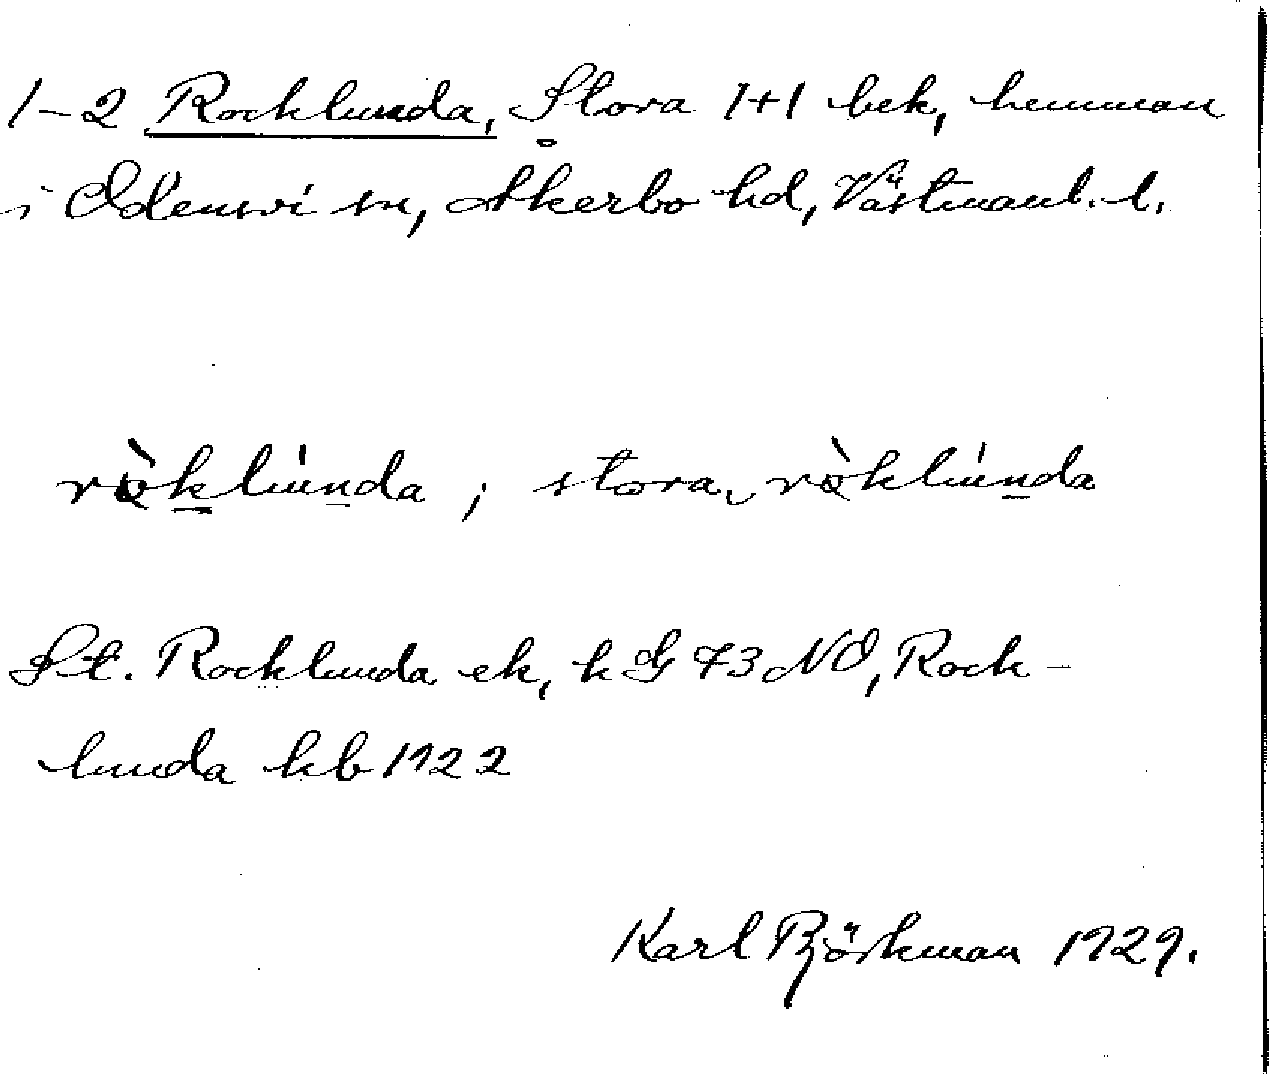 1-2 Rocklunda, Stora 1+1 bek, hemman
i Odensvi sn, Åkerbo hd, Västmanl. l.
ròklúnda ; stora ròklúnda
St. Rocklunda ek, h G 73 NO, Rock-
lunda kb 1922
Karl Björkman 1929.